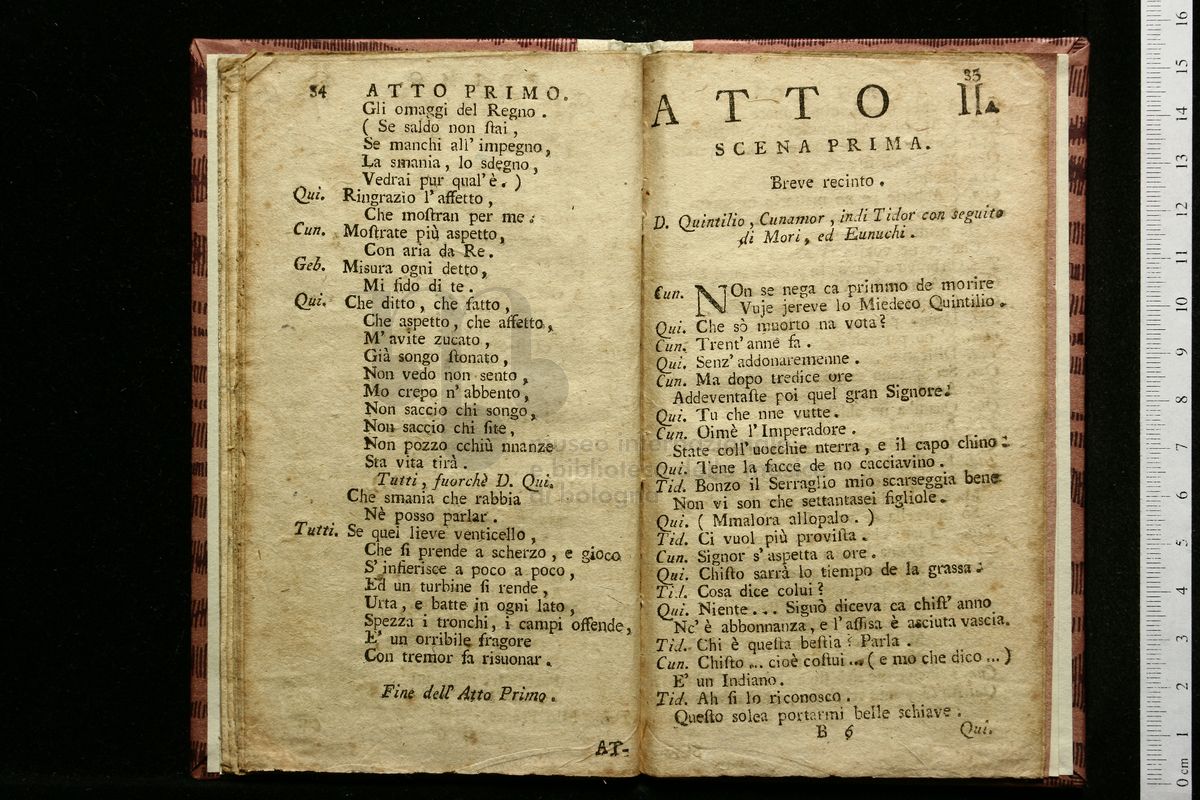 34 ATTO PRIMO.
Gli omaggi del Regno.
( Se saldo non ſtai,
Se manchi all' impegno,
La smania, lo sdegno,
Vedrai pur qual'è. )
Qui. Ringrazio l'affetto,
Che moſtran per me:
Cun. Moſtrate più aspetto,
Con aria da Re.
Geb. Misura ogni detto,
Mi fido di te.
Qui. Che ditto, che fatto,
Che aspetto, che affetto,
M' avite zucato,
Già songo ſtonato,
Non vedo non sento,
Mo crepo n' abbento,
Non saccio chi songo,
Non saccio chi ſite,
Non pozzo cchiù nnanze
Sta vita tirà.
Tutti, fuorchè D. Qui.
Che smania che rabbia
Nè posso parlar.
Tutti. Se quel lieve venticello,
Che ſi prende a scherzo, e gioco
S' infierisce a poco a poco,
Ed un turbine ſi rende,
Urta, e batte in ogni lato,
Spezza i tronchi, i campi offende,
E' un orribile fragore
Con tremor fa risuonar.
Fine dell' Atto Primo.
AT-
35
ATTO II.
SCENA PRIMA.
Breve recinto.
D. Quintilio, Cunamor, indi Tidor con seguito
di Mori, ed Eunuchi.
Cun. NOn se nega ca primmo de morire
Vuje jereve lo Miedeco Quintilio.
Qui. Che sò muorto na vota?
Cun. Trent' anne fa.
Qui. Senz' addonaremenne.
Cun. Ma dopo tredice ore
Addeventaſte poi quel gran Signore.
Qui. Tu che nne vutte.
Cun. Oimè l'Imperadore.
State coll' uocchie nterra, e il capo chino:
Qui. Tene la facce de no cacciavino.
Tid. Bonzo il Serraglio mio scarseggia bene
Non vi son che settantasei figliole.
Qui. ( Mmalora allopalo. )
Tid. Ci vuol più proviſta.
Cun. Signor s'aspetta a ore.
Qui. Chiſto sarrà lo tiempo de la grassa:
Tid. Cosa dice colui?
Qui. Niente... Signò diceva ca chiſt' anno
Nc' è abbonnanza, e l'aſſisa è asciuta vascia.
Tid. Chi è queſta beſtia? Parla.
Cun. Chiſto ... cioè coſtui ... ( e mo che dico ... )
E' un Indiano.
Tid. Ah ſi lo riconosco.
Queſto solea portarmi belle schiave.
B 6 Qui.